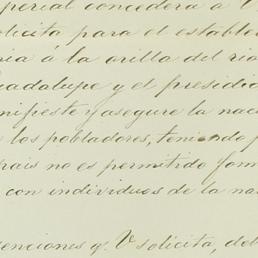 perial concederá a V
olicita para el estable
ria á la orilla del rio
uadalupe y el presidio
nifieste y asegure la nac
los pobladores, teniendo p
pais no es permitido for
con individuos de la na
enciones q. V solicita, deb